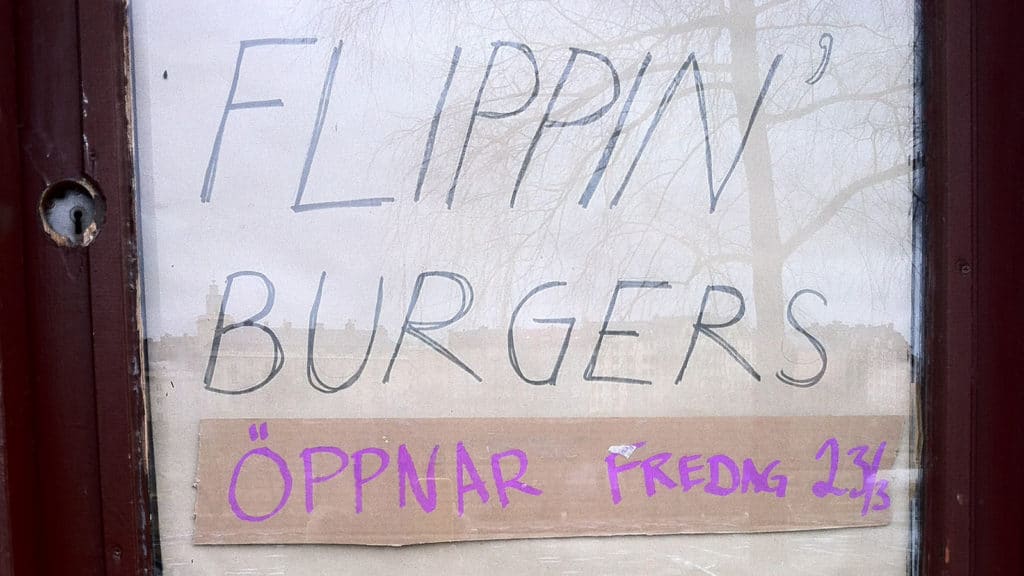 FLIPPIN'
BURGERS
ÖPPNAR FREDAG 23/3